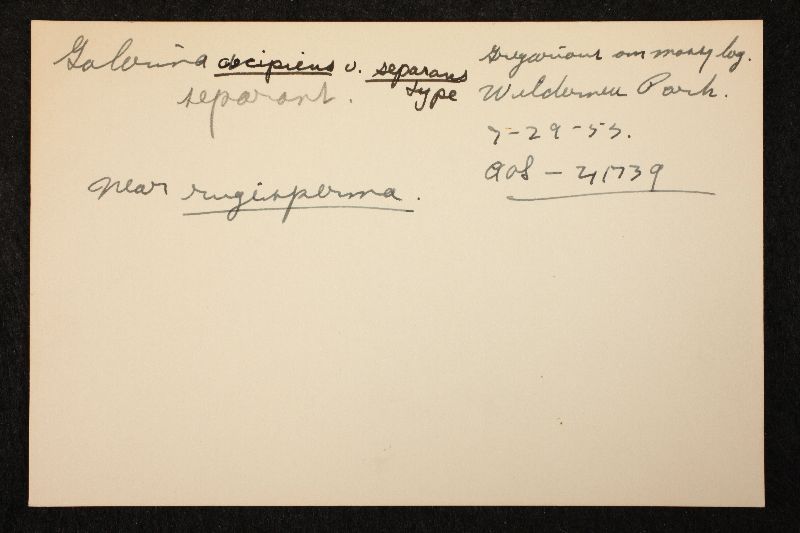 Galerina decipiens v. separans
type
separans.
near rugisperma.
Gregarious on mossy log.
Wilderness Park.
7-29-53.
AHS - 41739